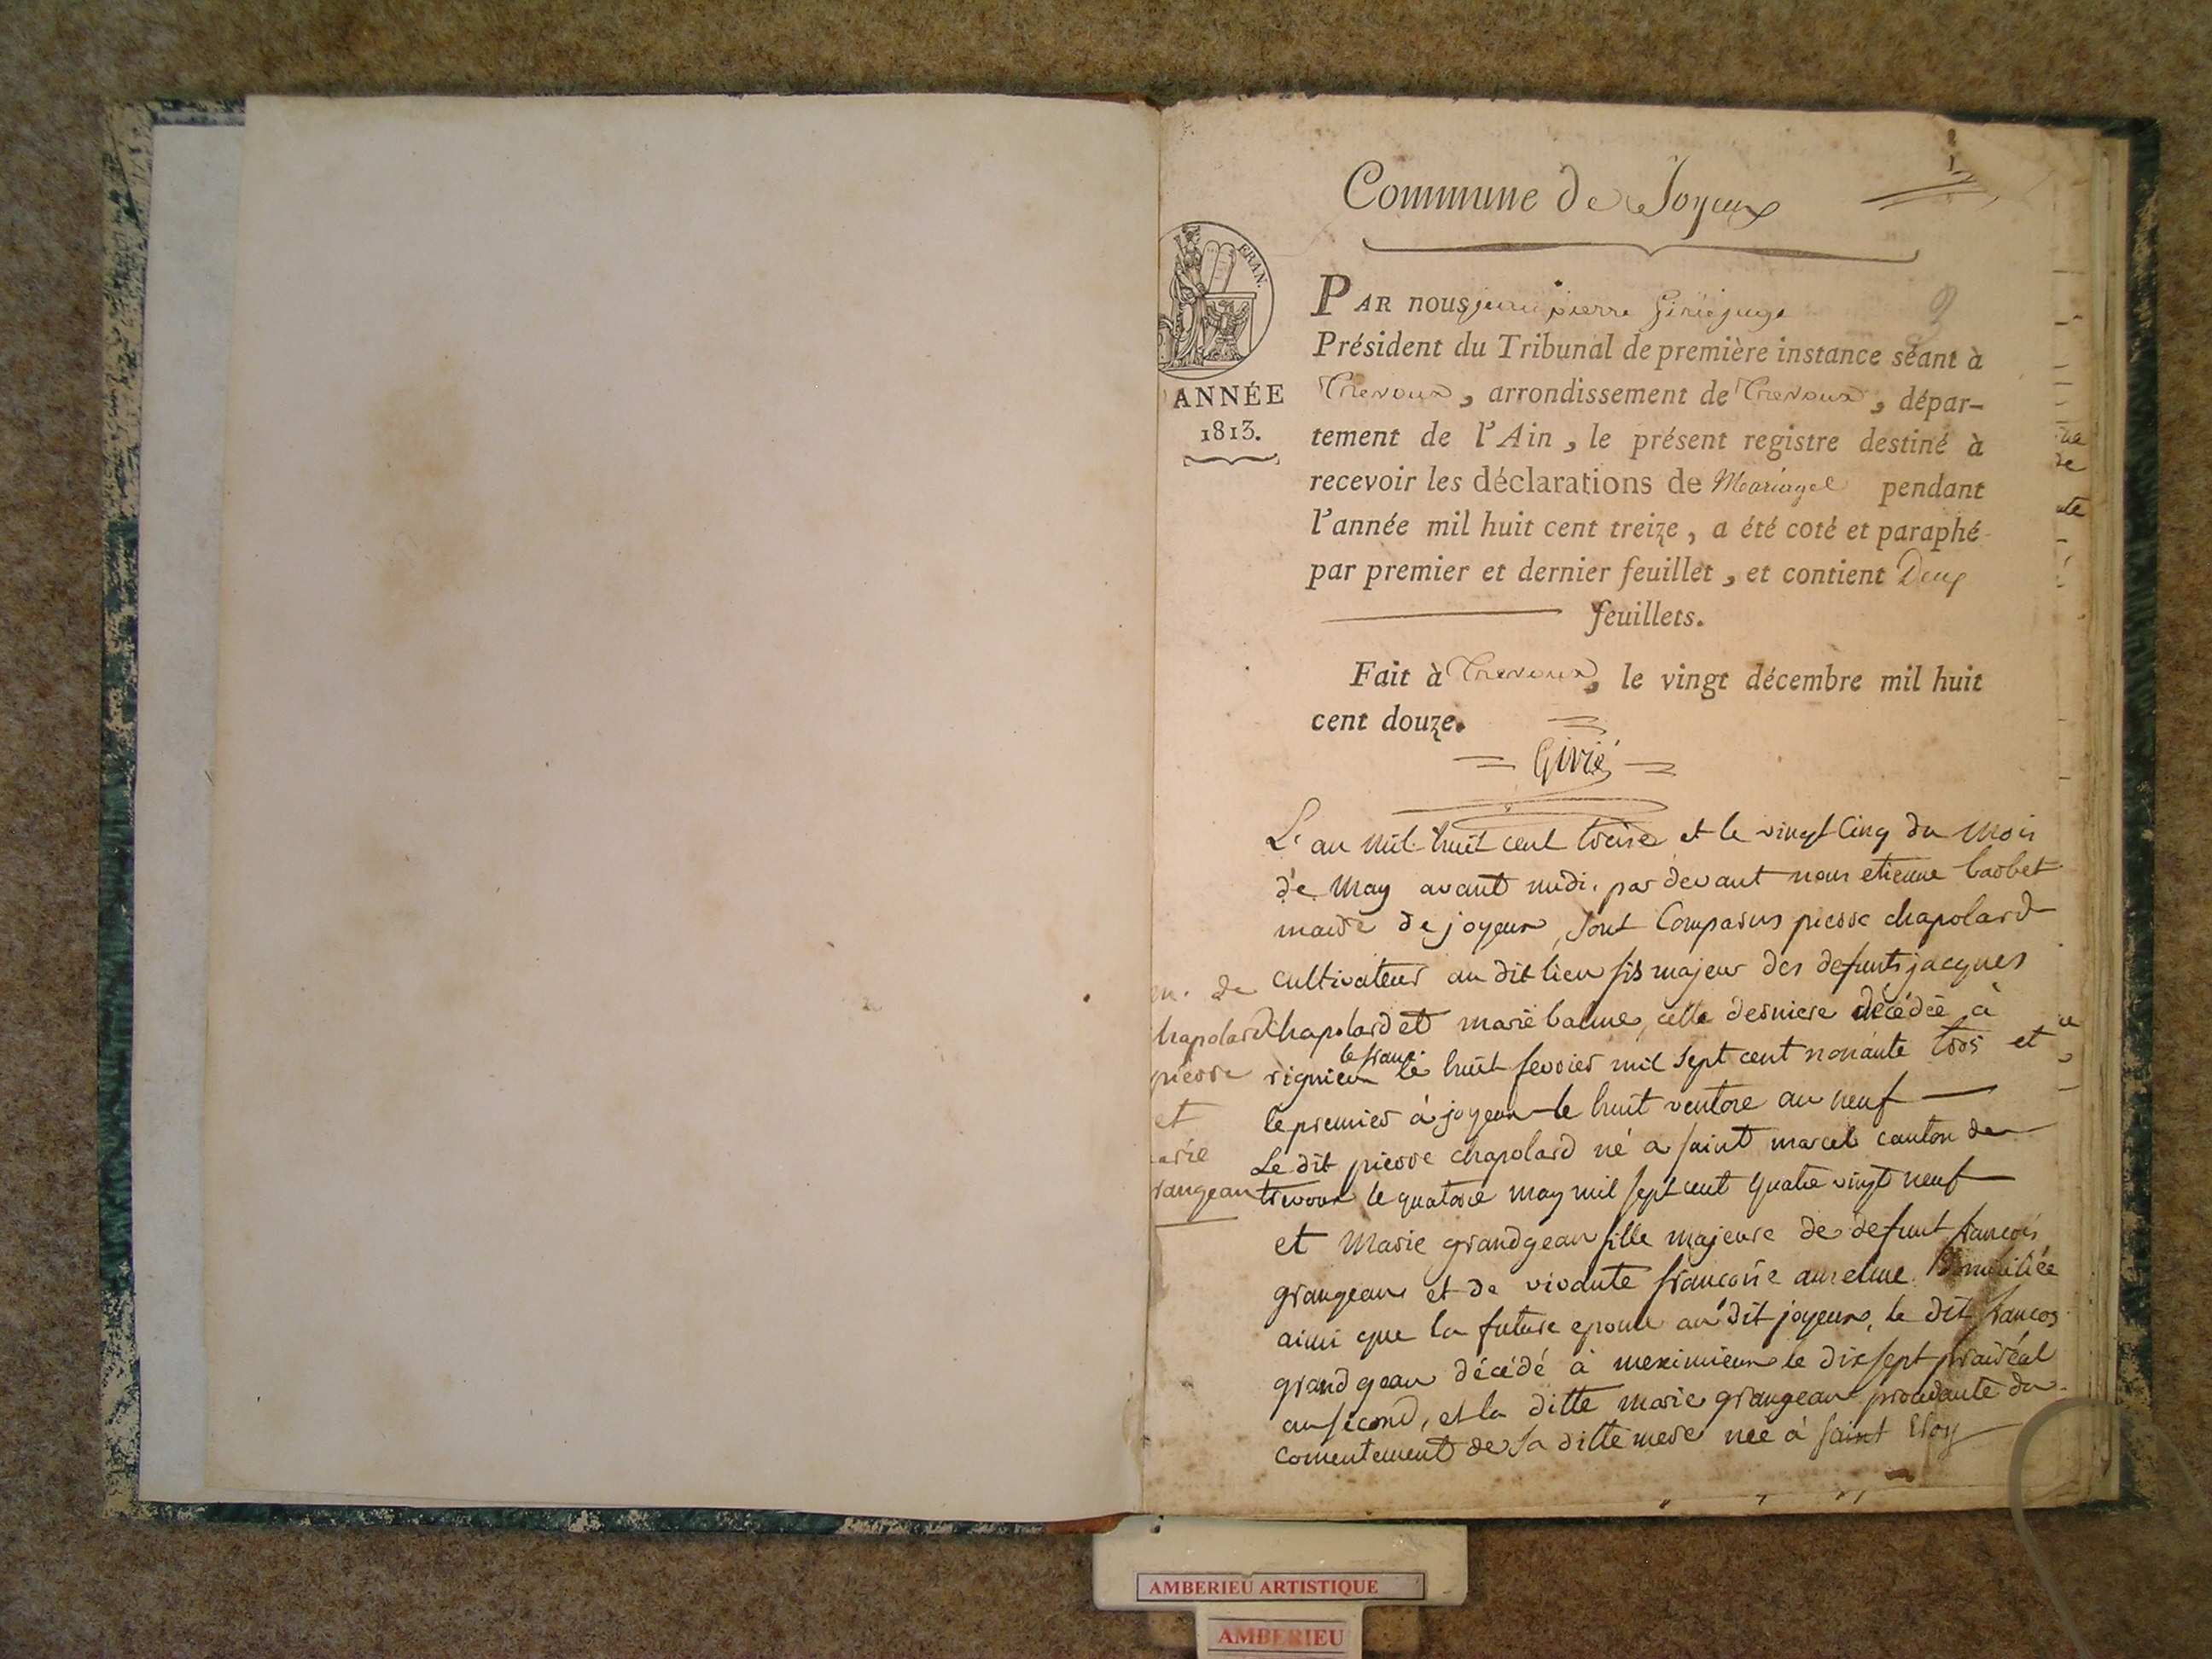 Commune de Joyeux
FRAN.
ANNÉE
1813.
PAR nous jean pierre Girié juge
Président du Tribunal de première instance séant à
Trevoux, arrondissement de Trevoux, dépar-
tement de l'Ain, le présent registre destiné à
recevoir les déclarations de Mariages pendant
l'année mil huit cent treize, a été coté et paraphé
par premier et dernier feuillet, et contient Deux
feuillets.
Fait à Trevoux, le vingt décembre mil huit
cent douze.
Girié
L'an mil huit cent treise et le vingt cinq du mois
de May avant midi. par devant nous etienne barbet
maire de joyeux, sont Comparus pierre chapolard
cultivateur au dit lieu fils majeur des defunts jacques
chapolard et marie balme, cette derniere décédée à
rignieu le franc le huit fevrier mil sept cent nonante trois et
le premier à joyeux le huit ventose an neuf
Le dit pierre chapolard né a saint marcel canton de
trevoux le quatorse may mil sept cent quatre vingt neuf
et Marie grandgean fille majeure de defunt francois
grangean et de vivante francoise domiciliée
ainsi que la future epouse au dit joyeux, le dit francos
grandgean décédé à meximieux le dix sept prairéal
an second, et la ditte marie grangean procédante du
consentement de sa ditte mere née à saint Eloy
m. de
hapolard
pierre
et
arie
rangean
AMBERIEU ARTISTIQUE
AMBERIEU